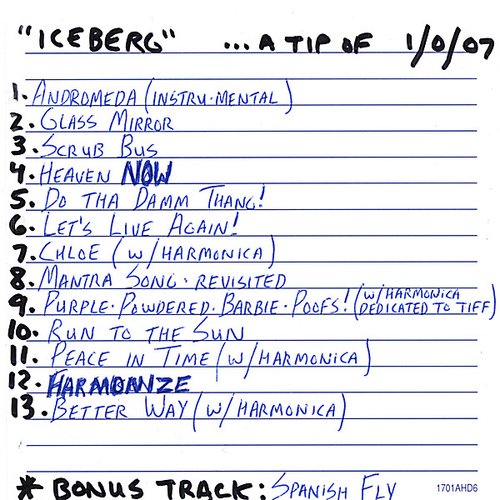 "ICEBERG" ...A TIP OF 1/0/07
1. ANDROMEDA (INSTRU·MENTAL)
2. GLASS MIRROR
3. SCRUB BUS
4. HEAVEN NOW
5. DO THA DAMM THANG!
6. LET'S LIVE AGAIN!
7. CHLOE (W/HARMONICA)
8. MANTRA SONG·REVISITED
9. PURPLE·POWDERED·BARBIE·POOFS! (W/HARMONICA DEDICATED TO TIFF)
10. RUN TO THE SUN
11. PEACE IN TIME (W/HARMONICA)
12. HARMONIZE
13. BETTER WAY (W/HARMONICA)
* BONUS TRACK: SPANISH FLY
1701AHD6